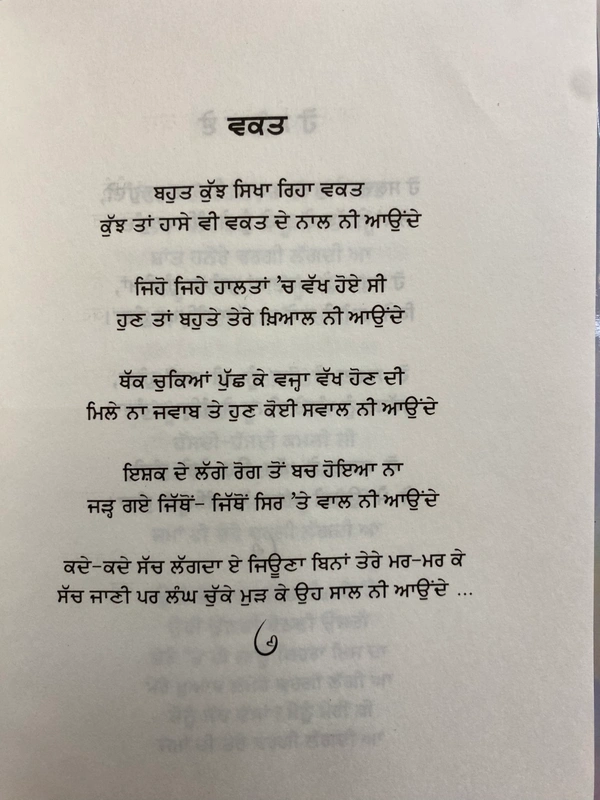 ਵਕਤ
ਬਹੁਤ ਕੁੱਝ ਸਿਖਾ ਰਿਹਾ ਵਕਤ
ਕੁੱਝ ਤਾਂ ਹਾਸੇ ਵੀ ਵਕਤ ਦੇ ਨਾਲ ਨੀ ਆਉਂਦੇ
ਜਿਹੋ ਜਿਹੇ ਹਾਲਤਾਂ ’ਚ ਵੱਖ ਹੋਏ ਸੀ
ਹੁਣ ਤਾਂ ਬਹੁਤੇ ਤੇਰੇ ਖ਼ਿਆਲ ਨੀ ਆਉਂਦੇ
ਥੱਕ ਚੁਕਿਆਂ ਪੁੱਛ ਕੇ ਵਜ੍ਹਾ ਵੱਖ ਹੋਣ ਦੀ
ਮਿਲੇ ਨਾ ਜਵਾਬ ਤੇ ਹੁਣ ਕੋਈ ਸਵਾਲ ਨੀ ਆਉਂਦੇ
ਇਸ਼ਕ ਦੇ ਲੱਗੇ ਰੋਗ ਤੋਂ ਬਚ ਹੋਇਆ ਨਾ
ਜੜ੍ਹ ਗਏ ਜਿੱਥੋਂ- ਜਿੱਥੋਂ ਸਿਰ ’ਤੇ ਵਾਲ ਨੀ ਆਉਂਦੇ
ਕਦੇ-ਕਦੇ ਸੱਚ ਲੱਗਦਾ ਏ ਜਿਊਣਾ ਬਿਨਾਂ ਤੇਰੇ ਮਰ-ਮਰ ਕੇ
ਸੱਚ ਜਾਣੀ ਪਰ ਲੰਘ ਚੁੱਕੇ ਮੁੜ ਕੇ ਉਹ ਸਾਲ ਨੀ ਆਉਂਦੇ ...